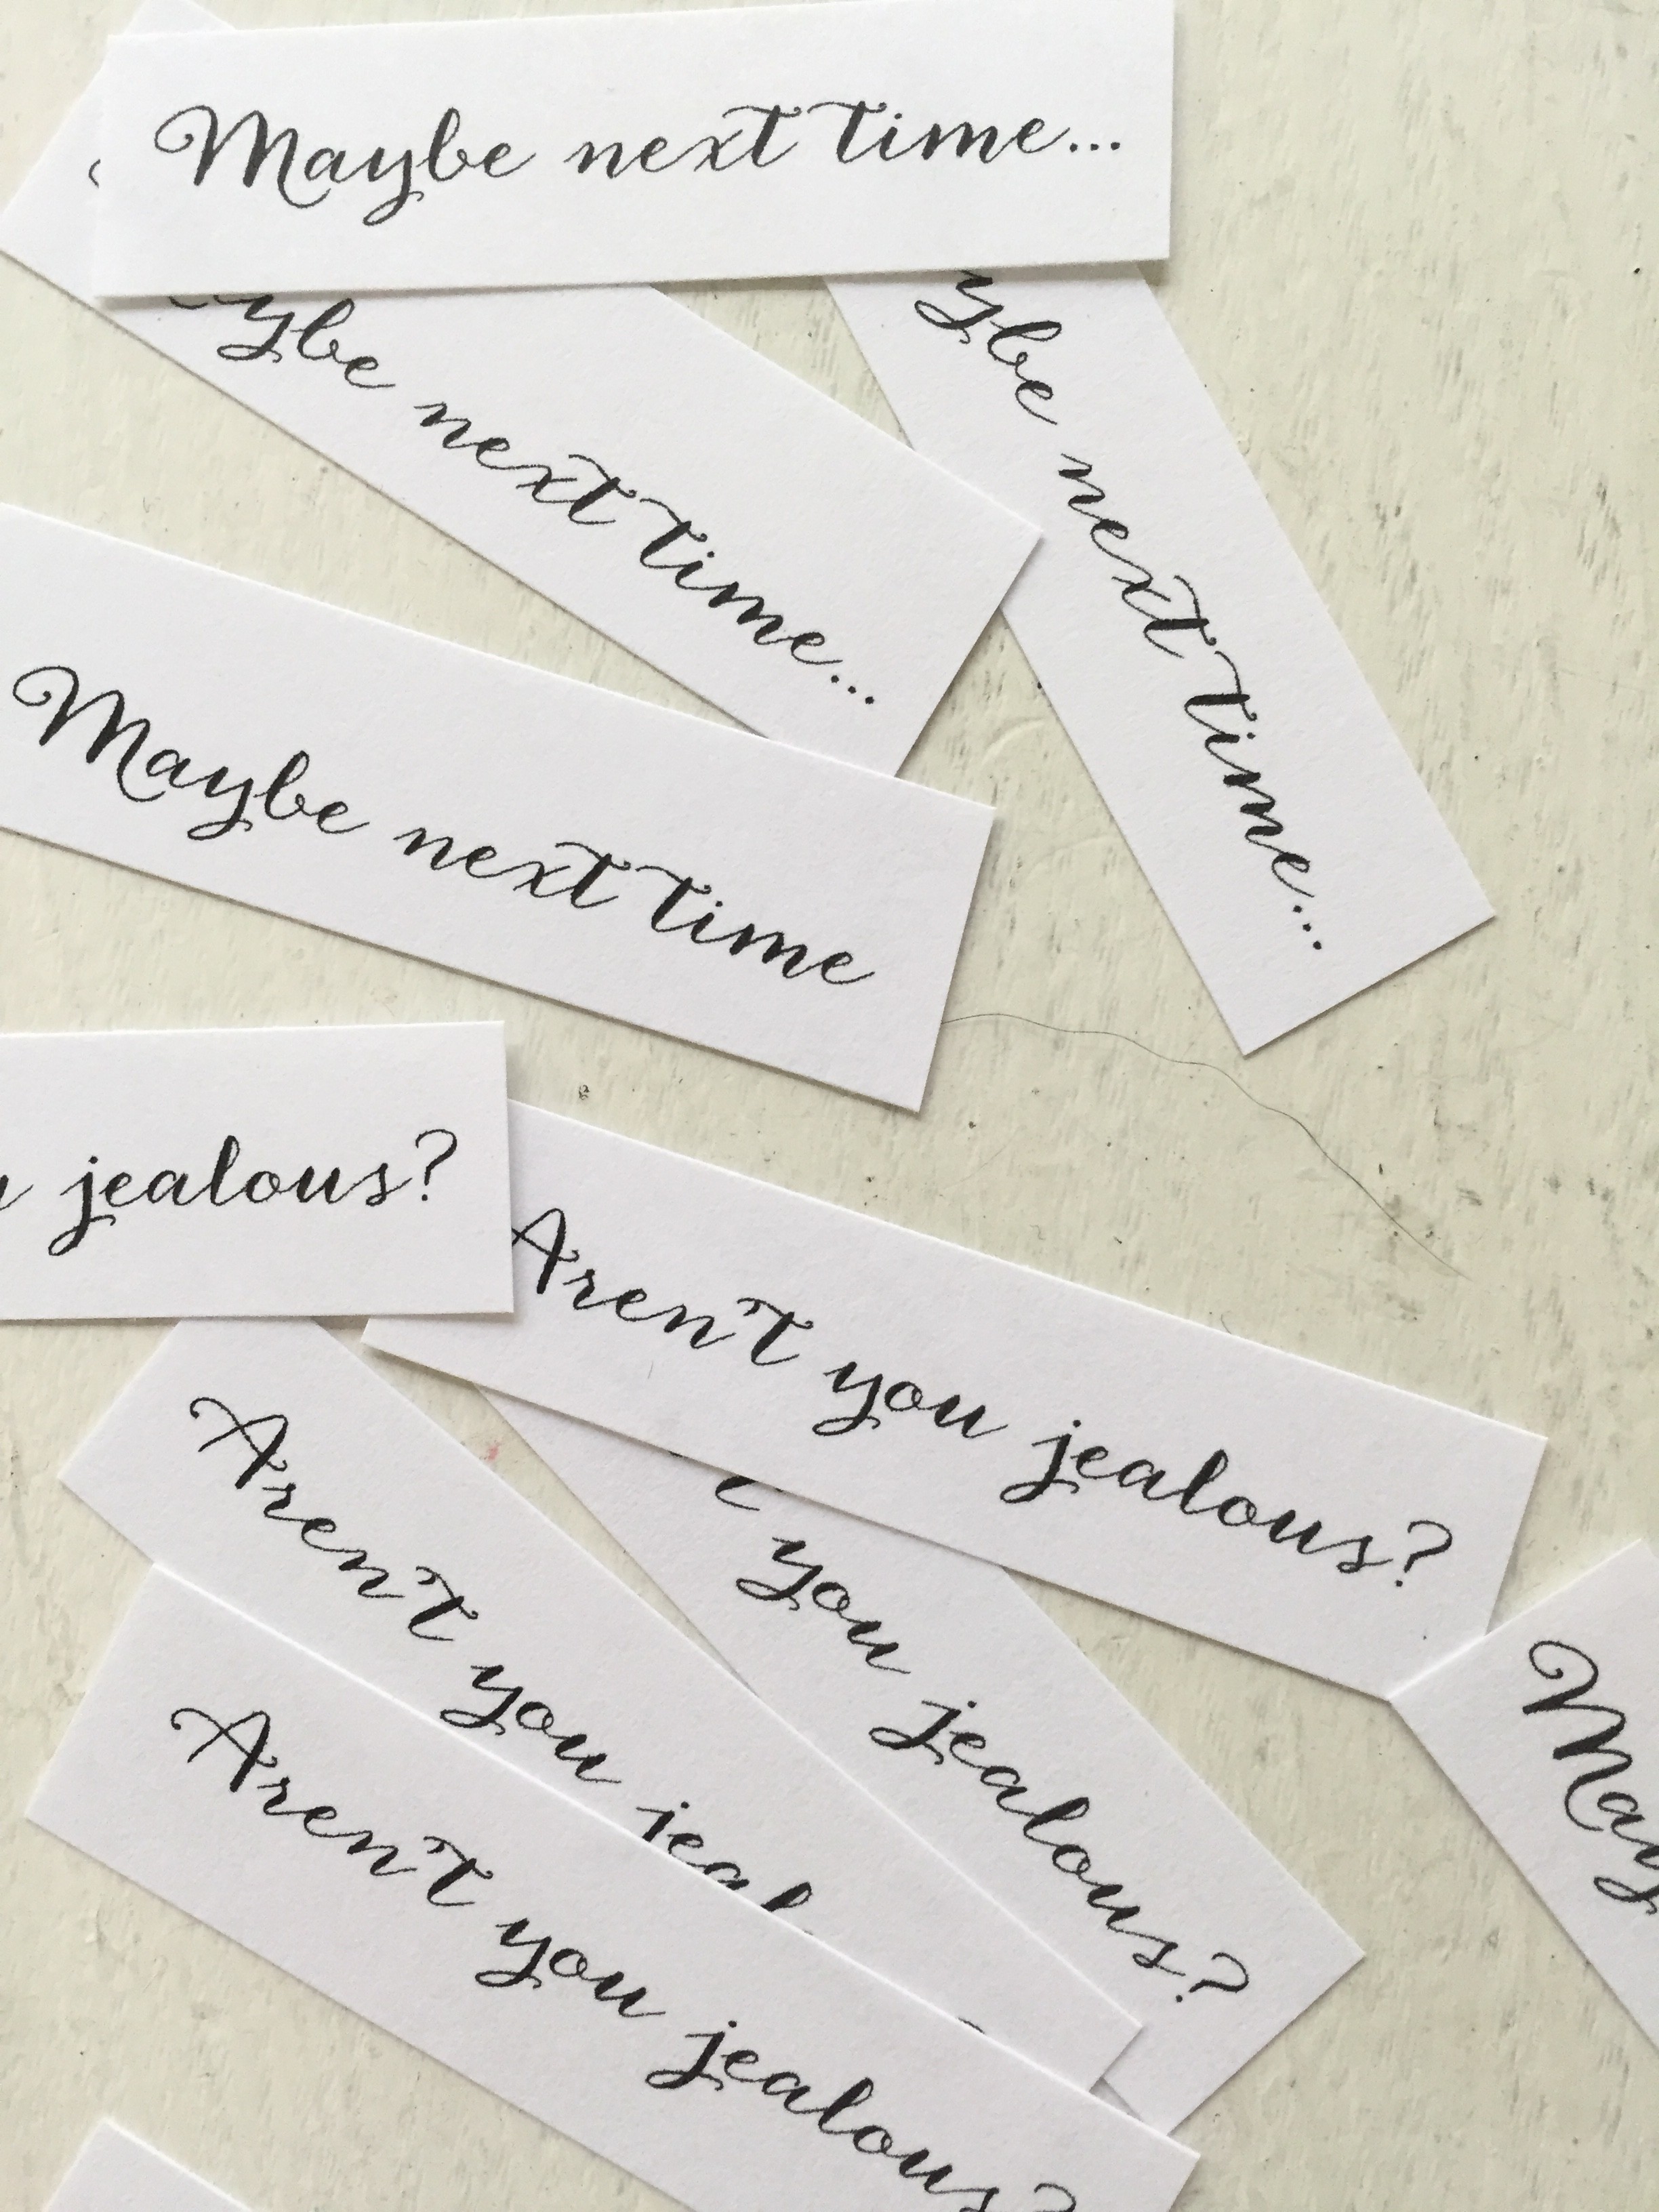 Maybe next time...
ybe next time...
ybe next time...
Maybe next time
jealous?
Aren't you jealous?
Aren't you jeal
you jealous?
Aren't you jealous?
May